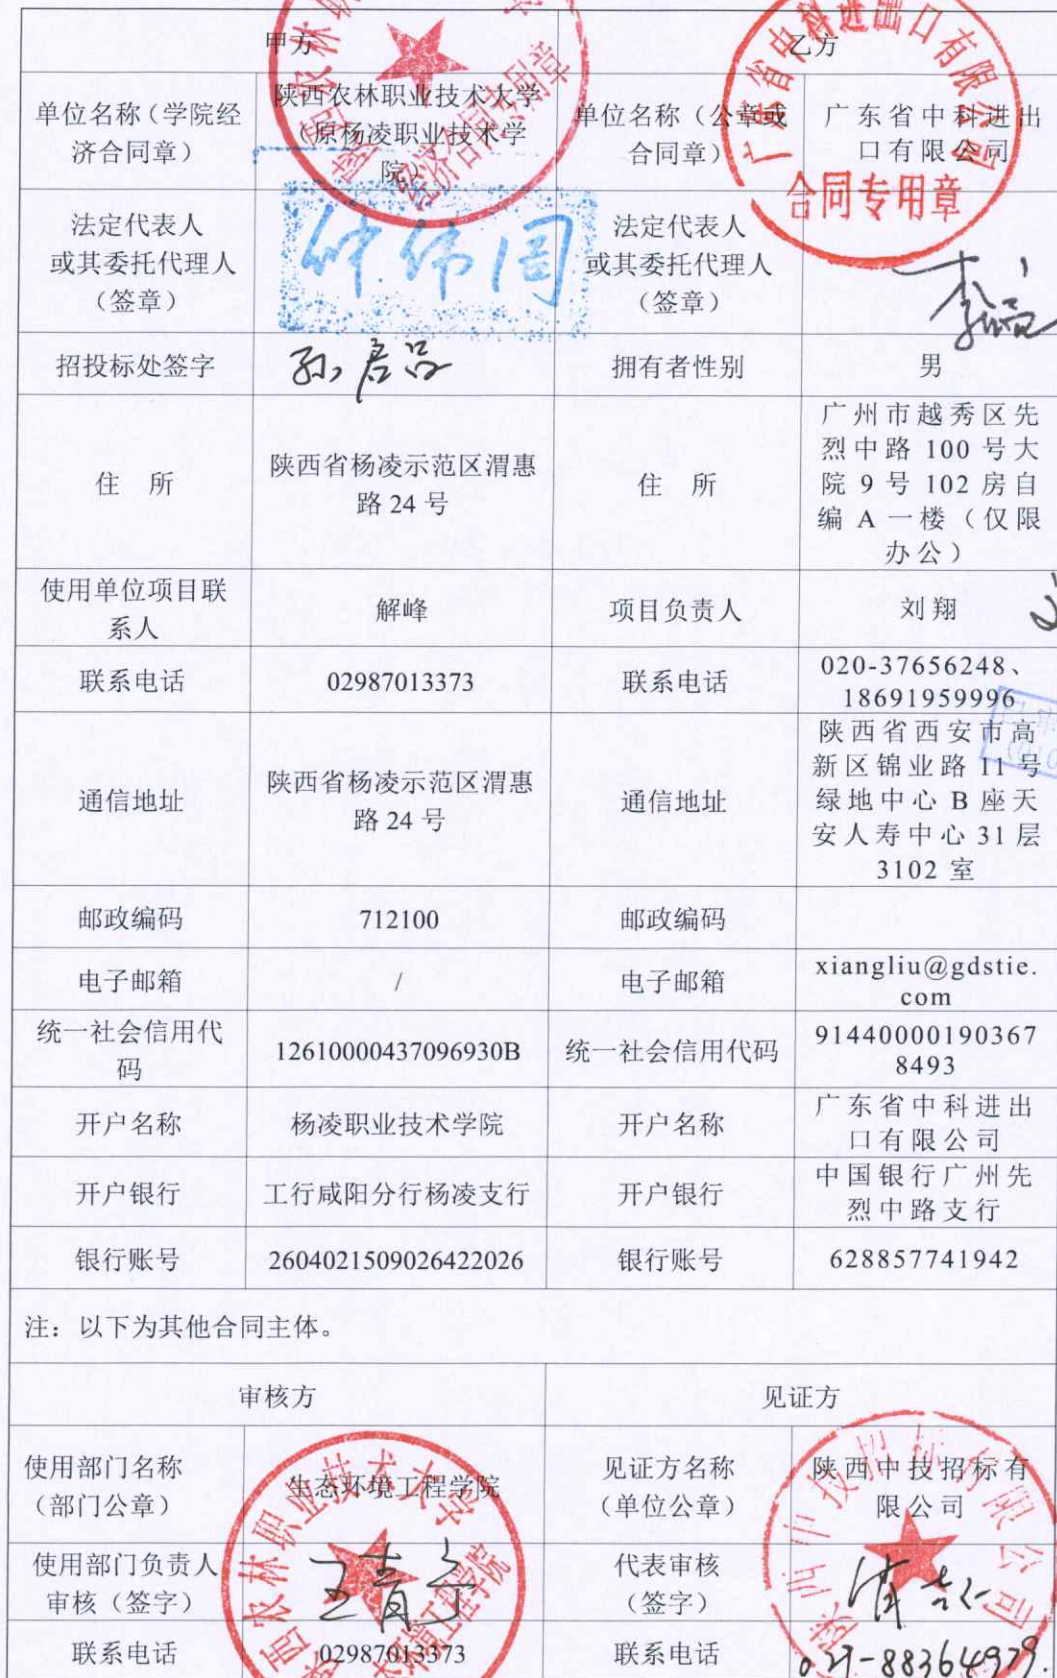 甲方 乙方
单位名称（学院经
济合同章）
陕西农林职业技术大学
（原杨凌职业技术学
院）
单位名称（公章或
合同章）
广东省中科进出
口有限公司
广东省中科进出口有限公司
合同专用章
经济合同专用章
法定代表人
或其委托代理人
（签章）
法定代表人
或其委托代理人
（签章）
招投标处签字
拥有者性别
男
住 所
陕西省杨凌示范区渭惠
路 24 号
住 所
广州市越秀区先
烈中路 100 号大
院 9 号 102 房自
编 A 一楼（仅限
办公）
使用单位项目联
系人
解峰
项目负责人
刘翔
联系电话
02987013373
联系电话
020-37656248、
18691959996
通信地址
陕西省杨凌示范区渭惠
路 24 号
通信地址
陕西省西安市高
新区锦业路 11 号
绿地中心 B 座天
安人寿中心 31 层
3102 室
邮政编码
712100
邮政编码
电子邮箱
/
电子邮箱
xiangliu@gdstie.
com
统一社会信用代
码
12610000437096930B
统一社会信用代码
91440000190367
8493
开户名称
杨凌职业技术学院
开户名称
广东省中科进出
口有限公司
开户银行
工行咸阳分行杨凌支行
开户银行
中国银行广州先
烈中路支行
银行账号
2604021509026422026
银行账号
628857741942
注：以下为其他合同主体。
审核方 见证方
使用部门名称
（部门公章）
生态环境工程学院
见证方名称
（单位公章）
陕西中技招标有
限公司
陕西中技招标有限公司
使用部门负责人
审核（签字）
王青宁
代表审核
（签字）
联系电话
02987013373
联系电话
029-88364979.